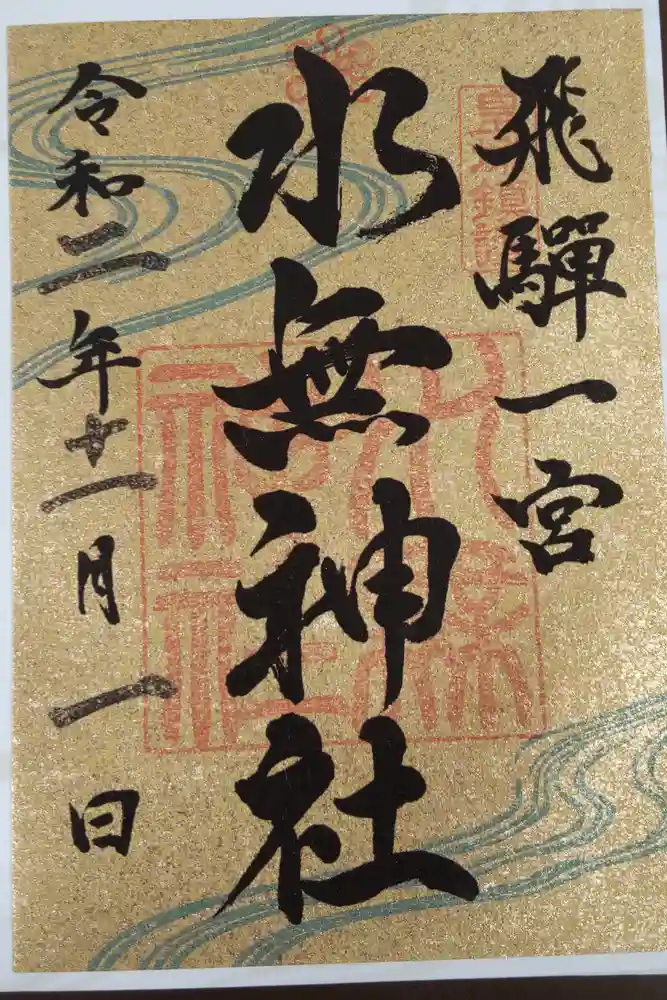 飛驒一宮
水無神社
令和二年十一月一日
水無神社